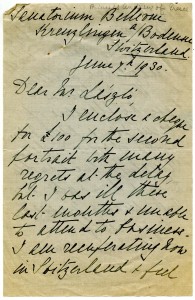 Sanatorium Bellevue
Kreuzlingen a/ Bodensee
Switzerland.
June 7th 1930.
Dear Mr László
I enclose a cheque
for £100 for the second
portrait with many
regrets at the delay
but I was ill these
last months & unable
to attend to business.
I am recuperating now
in Switzerland & feel